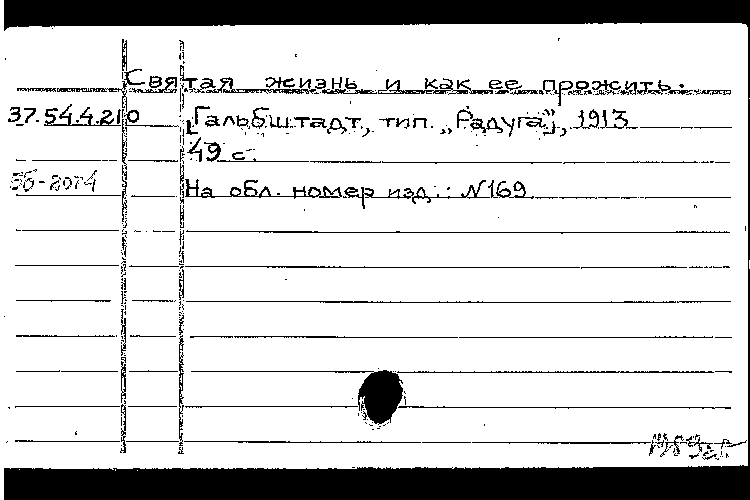 Святая жизнь и как ее прожить.
37.54.4.210
[Гальбштадт, тип. „Радуга”], 1913
49 с.
5б-2074
На обл. номер изд.: N169